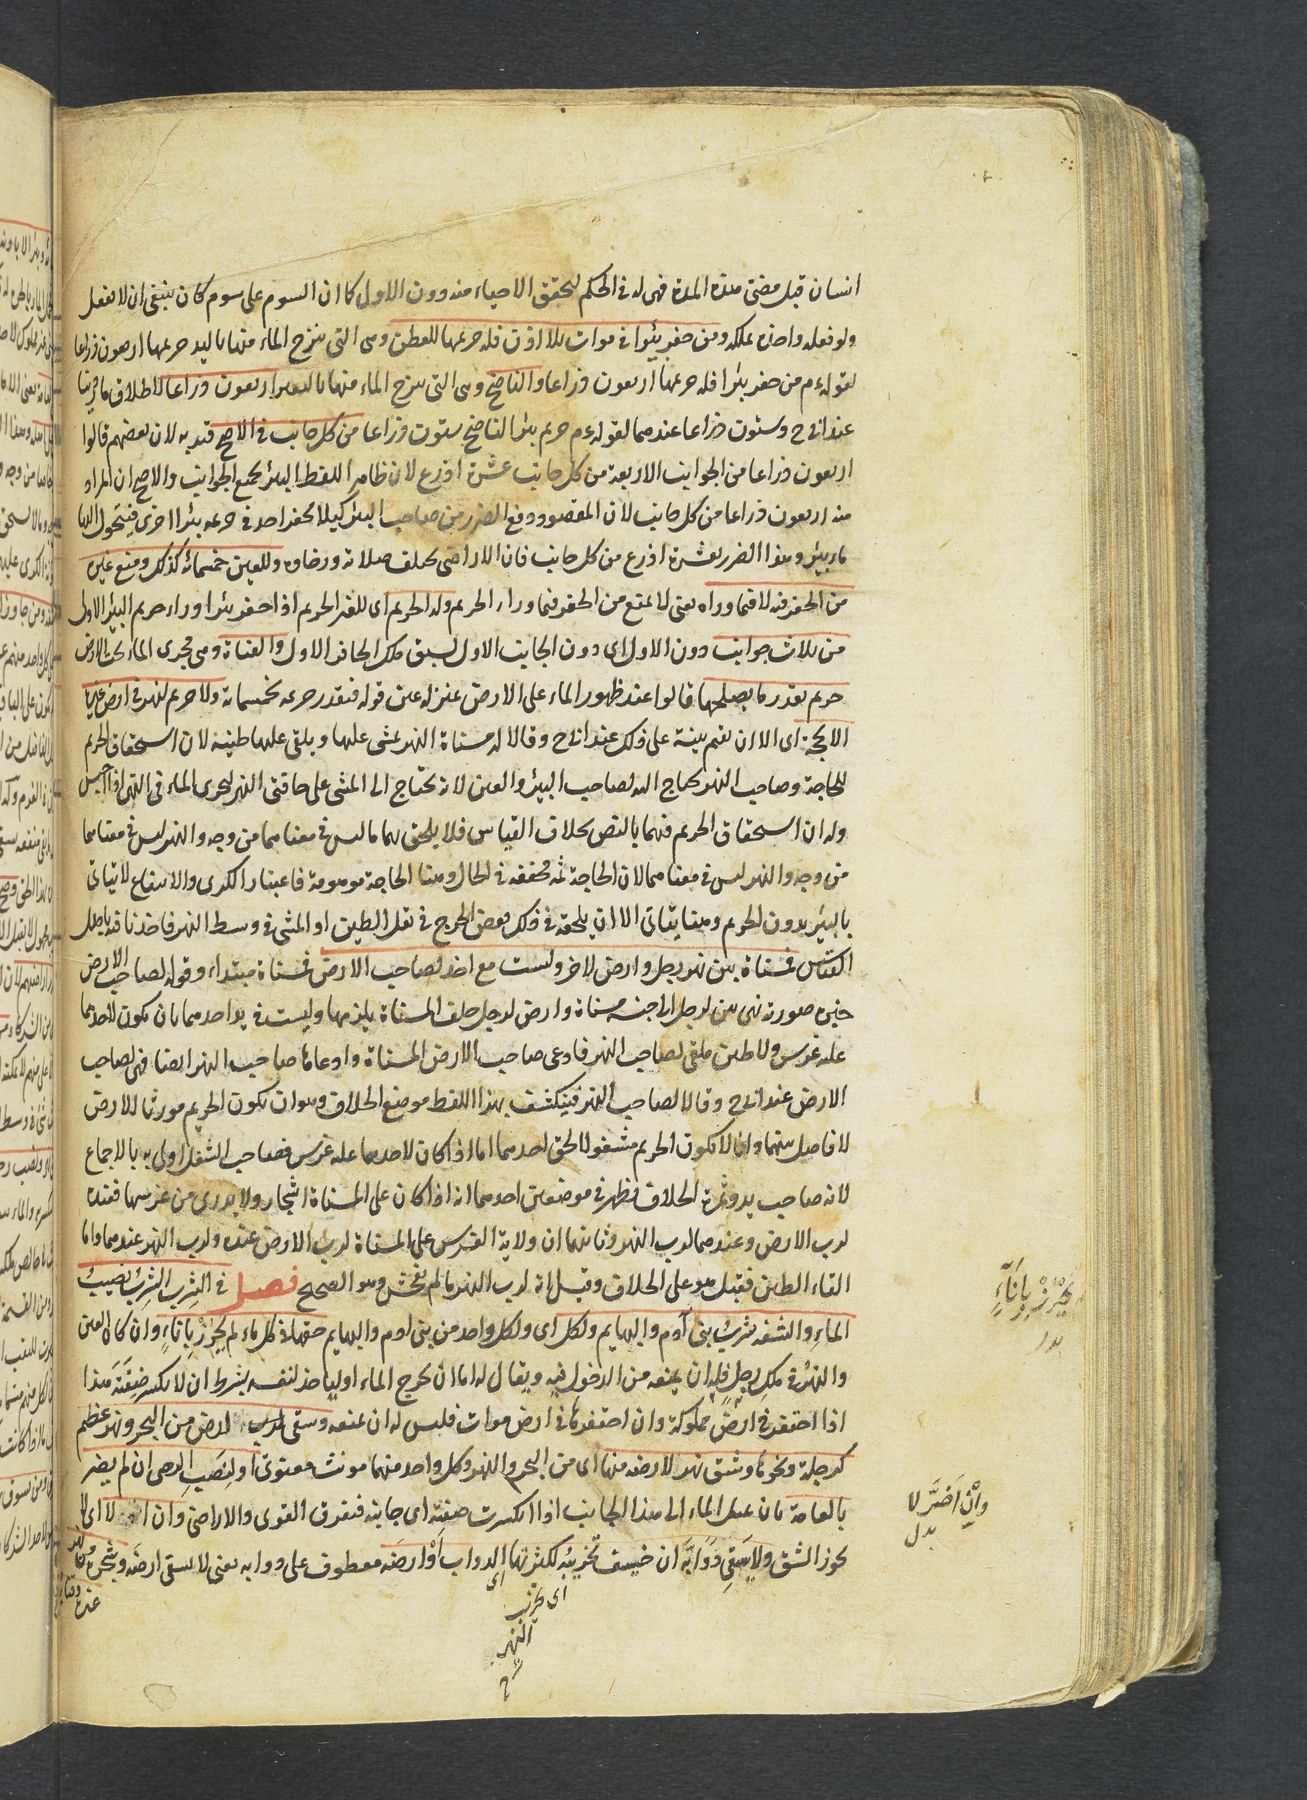 انسان قبل مضى هذه المدة فهى له فى الحكم لتحقق الاحياء منه دون الاول كما ان السوم على سوم كان ينبغى ان لا يفعل
ولو فعله واحد يملكه ومن حفر بئرا فى موات بلا اذن فله حريمها للعطن وهى التى ينزح الماء منها باليد حريمها اربعون ذراعا
لقوله عم من حفر بئرا فله حريمها اربعون ذراعا والناضح وهى التى ينزح الماء منها بالبعير اربعون ذراعا لاطلاق ما روينا
عند ابى ح وستون ذراعا عندهما لقوله عم حريم بئر الناضح ستون ذراعا من كل جانب فى الاصح قيد به لان بعضهم قالوا
اربعون ذراعا من الجوانب الاربعة من كل جانب عشرة اذرع لان ظاهر اللفظ البئر بجمع الجوانب والاصح ان المراد
منه اربعون ذراعا من كل جانب لان المقصود دفع الضرر من صاحب البئر كيلا يحفر احد فى حريمه بئرا اخرى فيتحول اليها
ماء بئره وهذا الضرر بعشرة اذرع من كل جانب فان الاراضى تختلف صلابة ورخاوة وللعين خمسمائة كذلك ومنع غيره
من الحفر فيه لا فيما وراه يعنى لا يمنع من الحفر فيما وراء الحريم وله الحريم اى للغير الحريم اذا حفر بئرا وراء حريم البئر الاول
من ثلاث جوانب دون الاول اى دون الجانب الاول لسبق ملك الحافر الاول والقناة وهى مجرى الماء تحت الارض
حريم بقدر ما يصلحها قالوا عند ظهور الماء على الارض بمنزلة عين فوارة فيقدر حريمه بخمسمائة ولا حريم لنهر فى ارض غيره
الا بحجة اى الا ان تقيم بينة على ذلك عند ابى ح وقالا له مسناة النهر يمشى عليها ويلقى عليها طينه لان استحقاق الحريم
للحاجة وصاحب النهر يحتاج اليه لصاحب البئر والعين لانه يحتاج الى المشى على حافتى النهر ليجرى الماء فى النهر اذا احبس
وله ان استحقاق الحريم فيهما بالنص بخلاف القياس فلا يلحق بهما ما ليس فى معناهما من وجه والنهر ليس فى معناهما
من وجه والنهر ليس فى معناهما لان الحاجة ثمه محققة فى الحال وهنا الحاجة موهومة فاعتبار الكرى والانتفاع لا يتأتى
بالبئر بدون الحريم وهنا يتأتى الا ان يلحقه فى ذلك بعض الحرج فى نقل الطين او المشى فى وسط النهر فاخذنا فيه باصل
القياس فمسناة بين نهر رجل وارض لاخر وليست مع احد لصاحب الارض فمسناة مبتداء وقوله لصاحب الارض
خبره صورته نهر بين لرجل الى جنبه مسناة وارض لرجل خلف المسناة يلزمها وليست فى يد احدهما بان يكون لاحدهما
عليه غرس ولا طين ملقى لصاحب النهر فادعى صاحب الارض المسناة وادعاها صاحب النهر ايضا فهى لصاحب
الارض عند ابى ح وقالا لصاحب النهر فينكشف بهذا اللفظ موضع الخلاف وهو ان يكون الحريم موازيا للارض
لا فاصل بينهما وان لا يكون الحريم مشغولا لحق احدهما اما اذا كان لاحدهما عليه غرس فصاحب الشغل اولى به بالاجماع
لانه صاحب يد وثمرة الخلاف تظهر فى موضعين احدهما انه اذا كان على المسناة اشجار ولا يدرى من غرسها فعنده
لرب الارض وعندهما لرب النهر وثانيهما ان ولاية الغرس على المسناة لرب الارض عنده ولرب النهر عندهما واما
القاء الطين فقيل هو على الخلاف وقيل انه لرب النهر ما لم يفحش وهو الصحيح فصل فى الشرب الشرب نصيب
الماء والشفه شرب بنى آدم والبهايم ولكل اى ولكل واحد من بنى ادم والبهايم حقهما فى كل ماء لم يحرز باناء وان كان العين
والنهر فى ملك رجل فله ان يمنعه من الدخول فيه ويقال له اما ان تخرج الماء او لياخذ لنفسه بشرط ان لا يكسر ضفته هذا
اذا احتفر فى ارض مملوكة وان احتفرها فى ارض موات فليس له ان يمنعه وسقى لرب الارض من البحر ونهر عظيم
كدجلة ونحوها وشق نهر لارضه منها اى من البحر والنهر وكل واحد منهما مونث معنوى او لنصب الرحى ان لم يضر
بالعامة بان يميل الماء الى هذا الجانب اذا انكسرت ضفته اى جانبه فتغرق القرى والاراضى وان اضر لا اى لا
يجوز الشق ولا يسقى دوابه ان خيف تخريبه لكثرتها اى الدواب او ارضه معطوف على دوابه يعنى لا يسقى ارضه وشجره
من نهر
غيره
اى تخريب
النهر
شرح
يحرز باناء
بدل
وان اضر لا
بدل